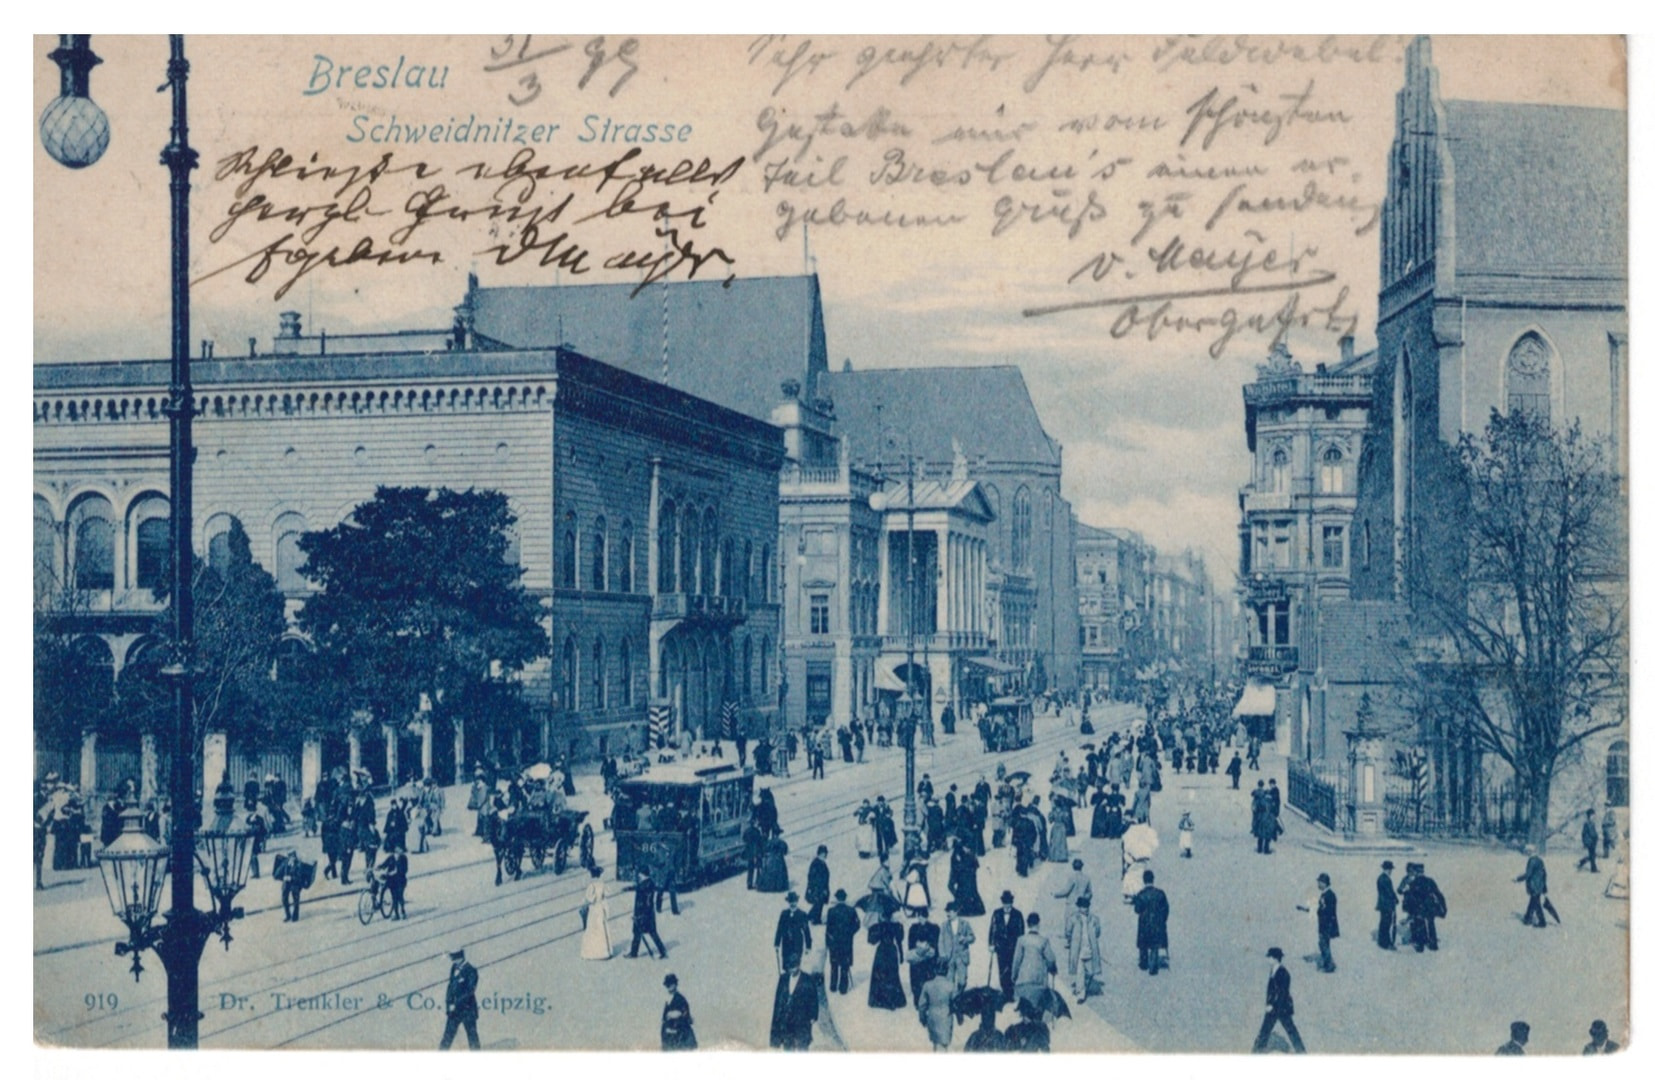 Breslau
Schweidnitzer Strasse
31/3 99.
Sehr geehrter Herr Feldwebel!
Gestatte mir vom schönsten
Teil Breslau's einen er-
gebenen Gruß zu senden
v. Mayer
Obergefrt.
Schließe ebenfalls
herzl. Gruß bei
Mayer.
86
919
Dr. Trenkler & Co., Leipzig.